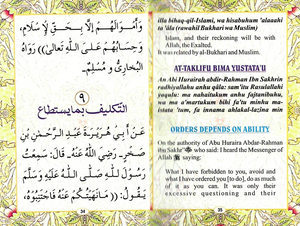 وَأَمْوَالَهُمْ إِلَّا بِحَقِّ لْإِسْلَامِ،
وَحِسَابُهُمْ عَلَى اللَّهِ تَعَالَى)) رَوَاهُ
الْبُخَارِيُّ وَ مُسْلِمٌ.
٩
التكليف بما يستطاع
عَنْ أَبِي هُرَيْرَةَ عَبْدِ الرَّحْمٰنِ بْنِ
صَخْرٍ. رَضِيَ اللَّهُ عَنْهُ. قَالَ: سَمِعْتُ
رَسُوْلَ اللَّهِ صَلَّى اللَّهُ عَلَيْهِ وَسَلَّمَ
يَقُوْلُ: ((مَانَهَيْتُكُمْ عَنْهُ فَاجْتَنِبُوْهُ،
34
illa bihaq-qil-Islami, wa hisabuhum 'alaahi
ta 'ila (rawahil Bukhari wa Muslim)
Islam, and their reckoning will be with
Allah, the Exalted.
It was related by al-Bukhari and Muslim.
AT-TAKLIFU BIMA YUSTATA'U
An Abi Hurairah abdir-Rahman Ibn Sakhrin
radhiyallahu anhu qala: sam'itu Rasulallahi
yaqulu: ma nahaitukum anhu fajtanibuhu,
wa ma a'martukum bihi fa'tu minhu masta-
ta 'tum, fa innama ahlakal-lazina min
ORDERS DEPENDS ON ABILITY
On the authority of Abu Huraira Abdar-Rahman
ibn Sakhr who said: I heard the Messenger of
Allah saying:
What I have forbidden to you, avoid and
what I have ordered you [to do], do as much
of it as you can. It was only their
excessive questioning and their
35